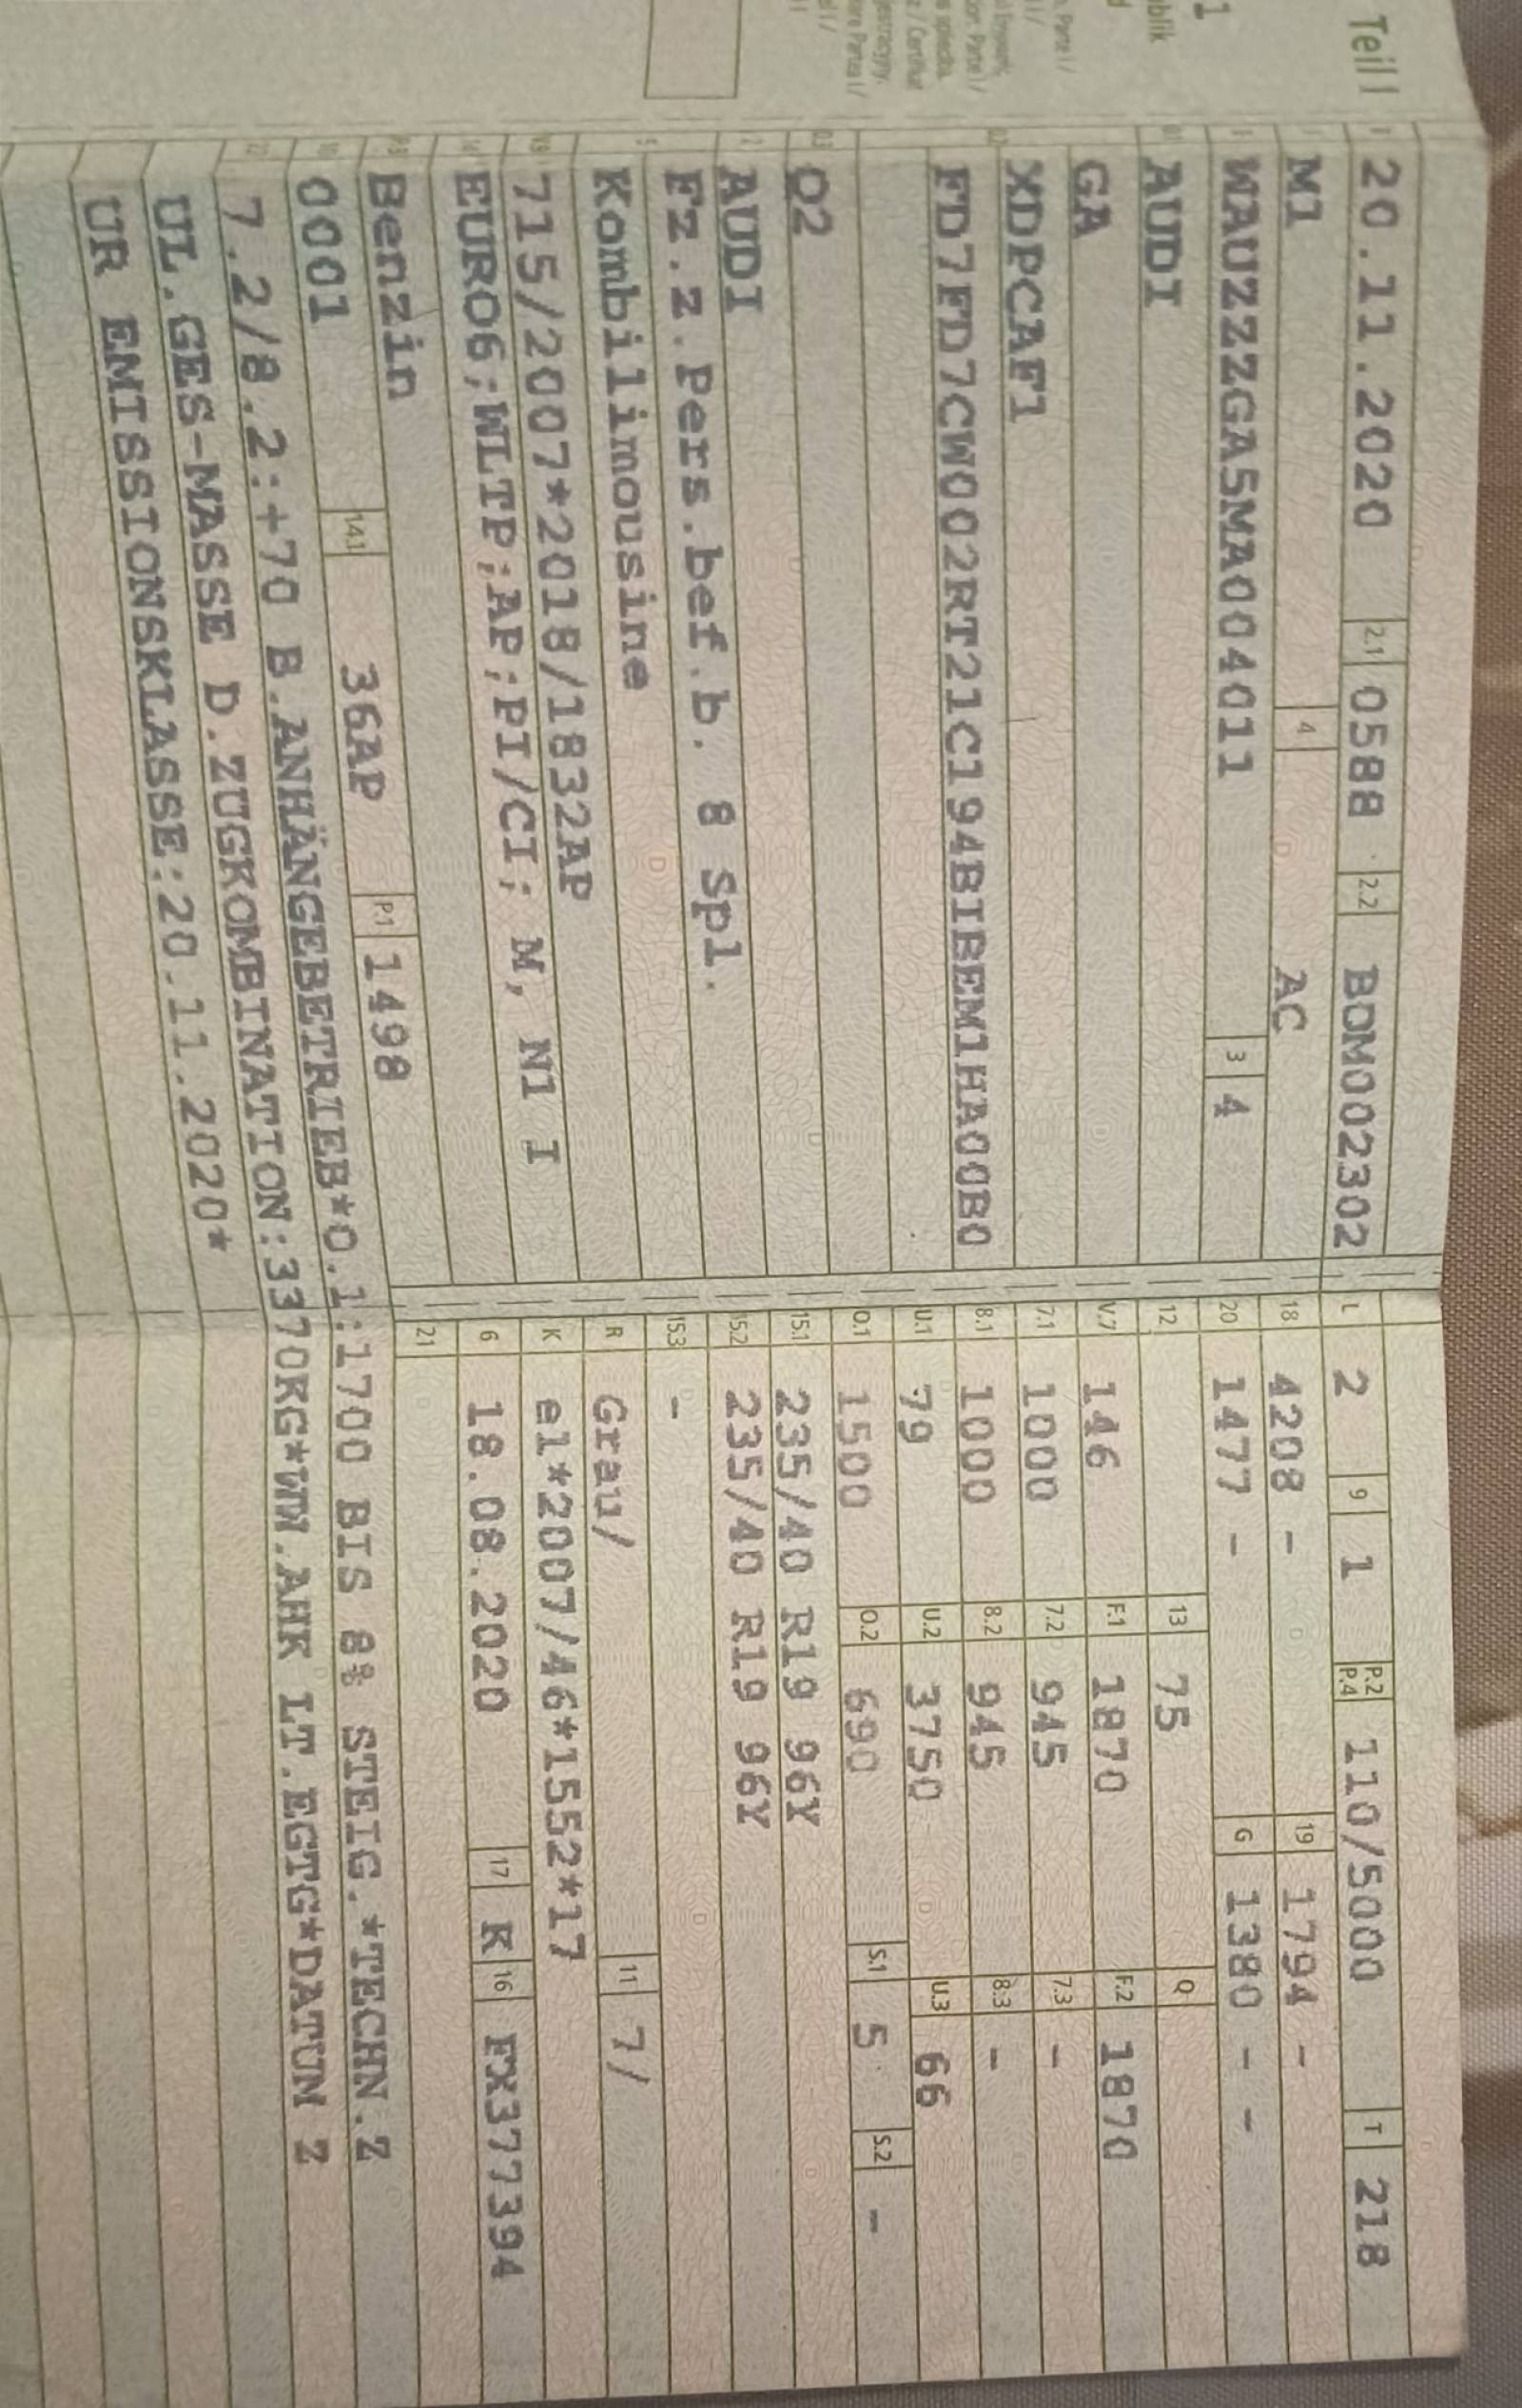 Teil I
1
20.11.2020 2.1 0588 2.2 BDM002302
M1 4 AC
WAUZZZGA5MA004011 3 4
AUDI
GA
XDPCAF1
FD7FD7CW002RT21C194BIBEM1HA00B0
D.3 Q2
2 AUDI
5 Fz.z.Pers.bef.b. 8 Spl.
Kombilimousine
V.9 715/2007*2018/1832AP
14 EURO6;WLTP;AP;PI/CI; M, N1 I
P.3 Benzin
10 0001 14.1 36AP P.1 1498
L 2 9 1 P.2 P.4 110/5000 T 218
18 4208 - 19 1794 -
20 1477 - G 1380 - -
12 13 75 Q
V.7 146 F.1 1870 F.2 1870
7.1 1000 7.2 945 7.3 -
8.1 1000 8.2 945 8.3 -
U.1 79 U.2 3750 U.3 66
O.1 1500 O.2 690 S.1 5 S.2 -
15.1 235/40 R19 96Y
15.2 235/40 R19 96Y
15.3 -
R Grau/ 11 7/
K e1*2007/46*1552*17
6 18.08.2020 17 K 16 FX377394
21
22 7.2/8.2:+70 B.ANHÄNGEBETRIEB*O.1:1700 BIS 8% STEIG.*TECHN.Z
UL.GES-MASSE D.ZUGKOMBINATION:3370KG*WW.AHK LT.EGTG*DATUN Z
UR EMISSIONSKLASSE:20.11.2020*